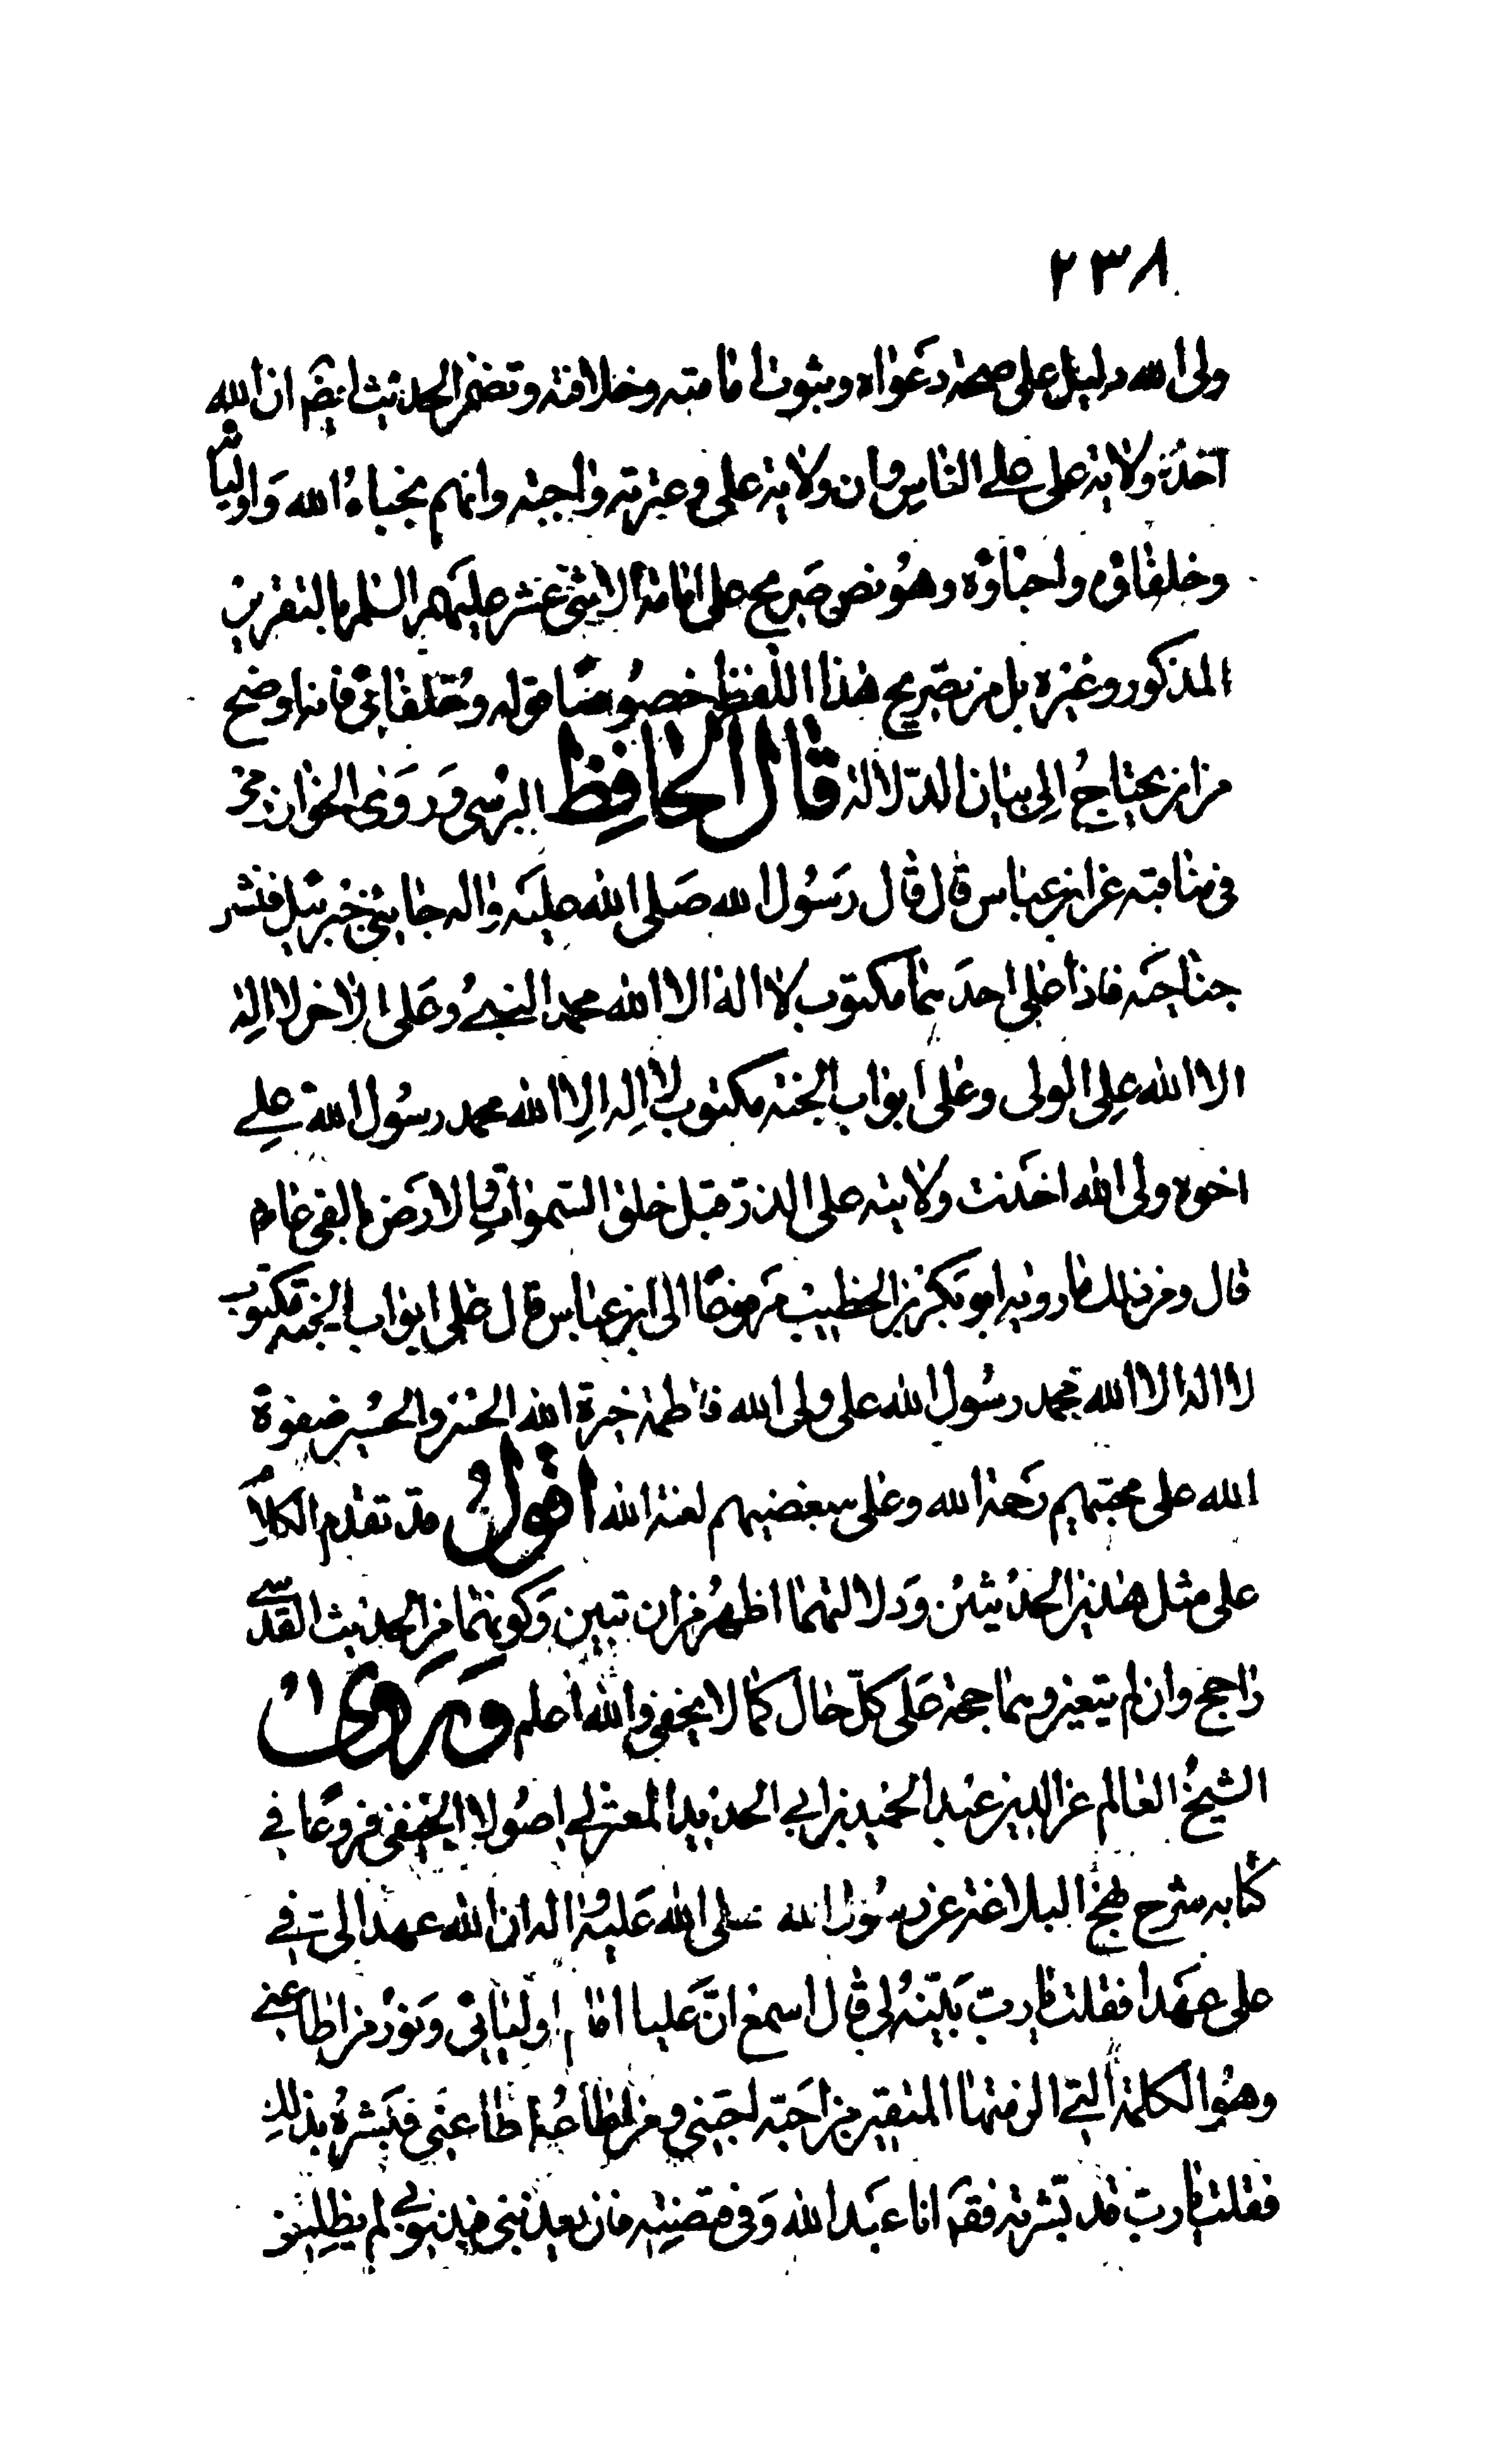 ٢٣٨
ولى الله دليل على صحة دعواه وبثوت امامته وخلافته وتضمن الحديث ايضا ان الله
اخذ ولاية على على الناس وان ولاية على وعترته واجبة وانهم نجباء الله واولياؤه
وخلفاؤه واحباؤه وهو نص صريح على امامة الاثنى عشر عليهم السلم بالتقريب
المذكور وغيره بل من تصريح هذا اللفظ خصوصا قوله وخلفائى فانه اوضح
من ان يحتاج الى بيان الدلالة قال الحافظ البرسى وروى الخوارزمى
فى مناقبه عن ابن عباس قال قال رسول الله صلى الله عليه واله جائنى جبرئيل فنشر
جناحيه فاذا على احدهما مكتوب لا اله الا الله محمد النبى وعلى الاخر لا اله
الا الله على الولى وعلى ابواب الجنة مكتوب لا اله الا الله محمد رسول الله على
اخوه ولى الله اخذت ولايته على الذر قبل خلق السموات والارض بالفى عام
قال ومن ذلك ما رويه ابو بكر بن الخطيب مرفوعا الى ابن عباس قال على ابواب الجنة مكتوب
لا اله الا الله محمد رسول الله على ولى الله فاطمة خيرة الله الحسن والحسين صفوة
الله على محبيهم رحمة الله وعلى مبغضيهم لعنة الله اقول قد تقدم الكلام
على مثل هذين الحديثين ودلالتهما اظهر من ان تبين وكونهما من الحديث القدسى
راجح وان لم يتعين وهما حجة على كل حال كما لا يخفى والله اعلم وروى
الشيخ العالم عز الدين عبد الحميد بن ابى الحديد المعتزلى اصولا الحنفى فروعا فى
كتابه شرح نهج البلاغة عن رسول الله صلى الله عليه واله ان الله عهد الى فى
على عهدا فقلت يا رب بينه لى قال اسمع ان عليا امام اوليائى ونور من اطاعنى
وهو الكلمة التى الزمتها المتقين من احبه احبنى ومن اطاعه اطاعنى فبشره بذلك
فقلت يا رب قد بشرته فقال انا عبد الله وفى قبضته فان يعذبنى فبذنوبى لم يظلمنى